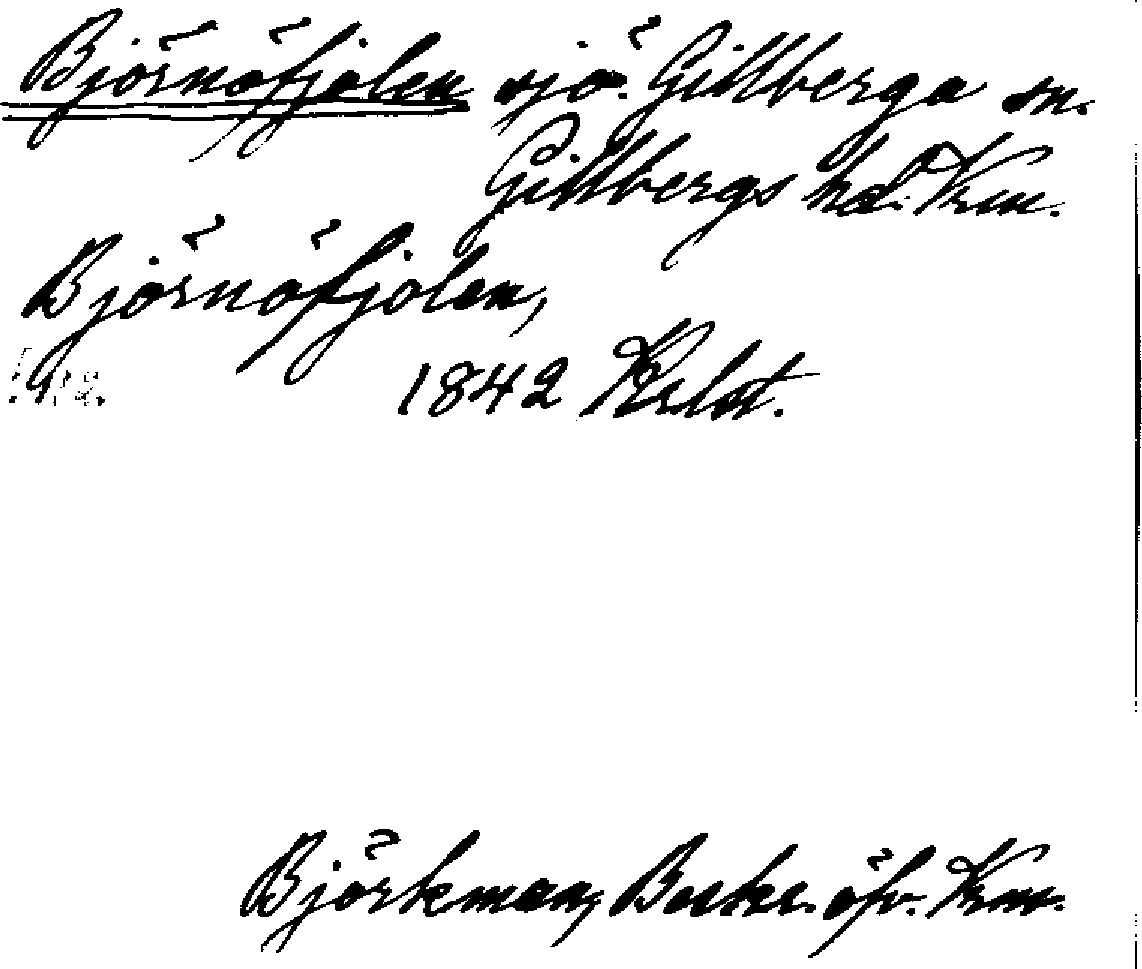 Björnöfjolen sjö. Gillberga sn.
Gillbergs hd. Vrm.
Björnöfjolen,
1842 Krlst.
Björkman, Beskr. öfv. Vrm.